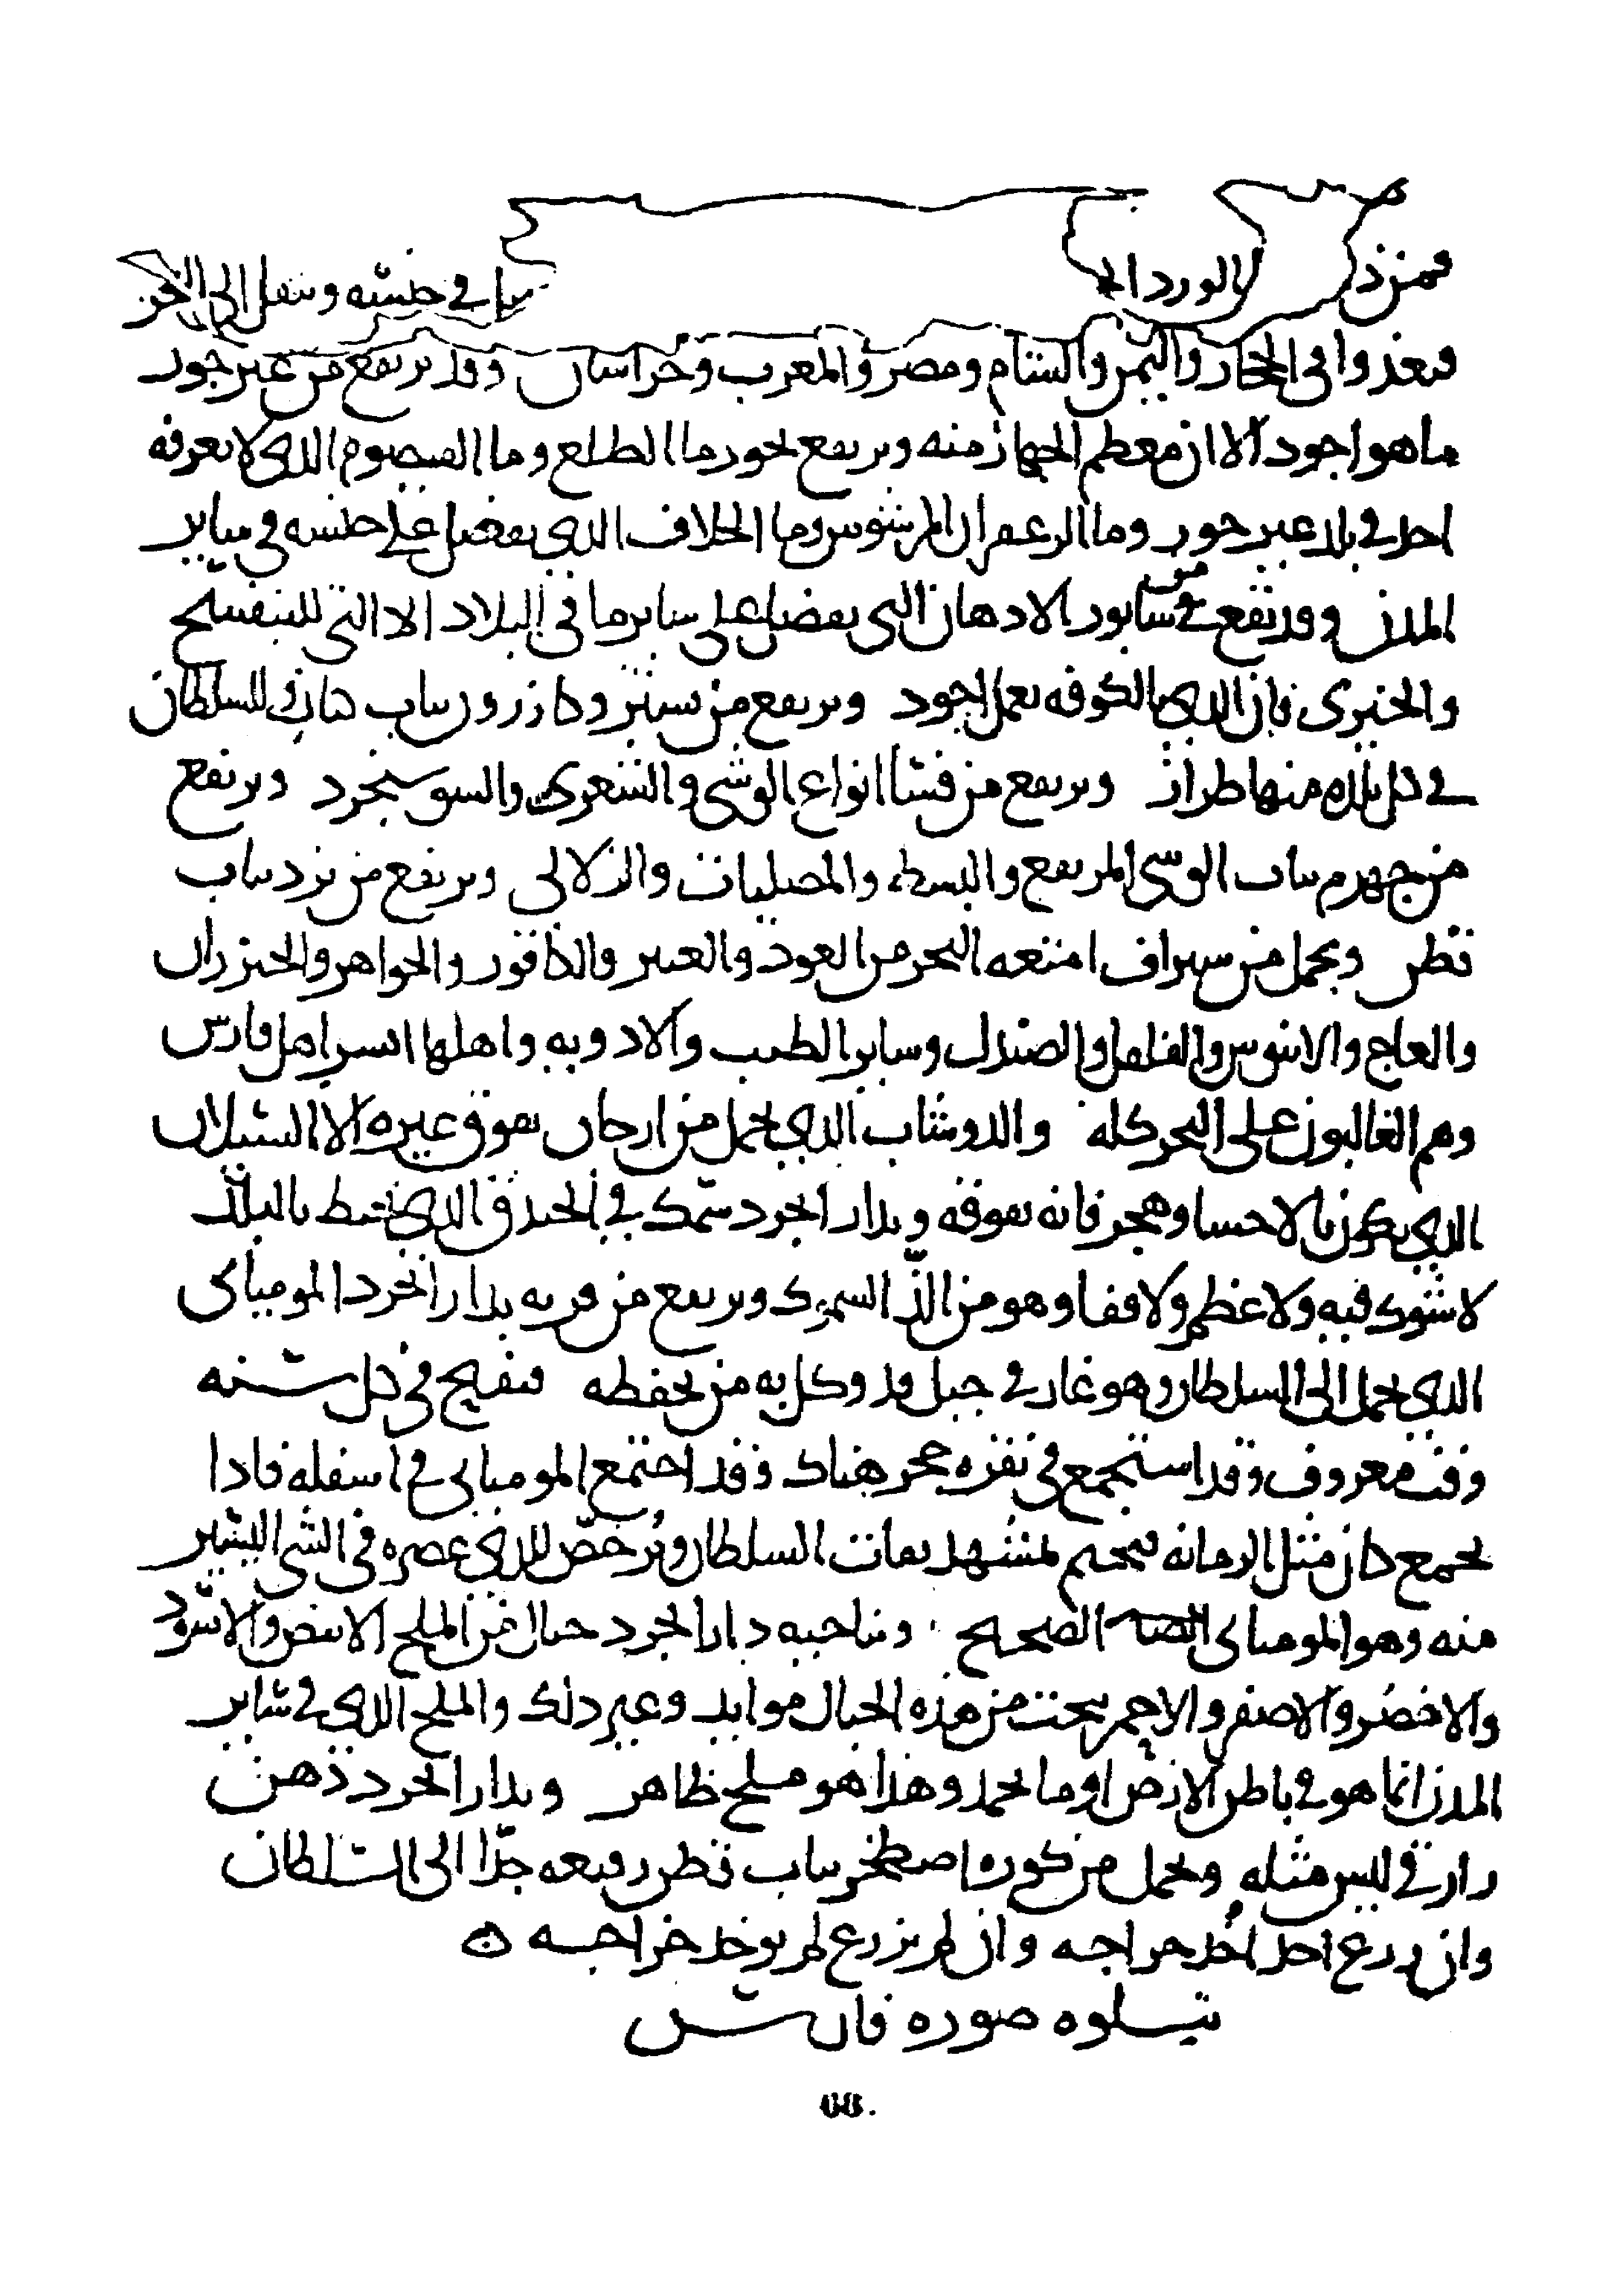 فمن ذ الورد الذ يا في جنسه وينقل الى البحر
فيغذوا في الحجاز واليمن والشام ومصر والمغرب وخراسان وقد يرتفع من غير جور
ما هو اجود الا ان معظم الجهاز منه ويرتفع بجور ما الطلع وما القيصوم الذي لا يعرفه
احد في بلد غير جور وما الزعفران المرشوش وما الخلاف الذي يفضل على جنسه في ساير
المدن ويرتفع من سابور الادهان التي تفضل على ساير ما في البلاد الا التي للبنفسج
والخيري فان الذي بالكوفه يعمل اجود ويرتفع من سينيز وكازرون ثياب كتان وللسلطان
في كل بلده منها طراز ويرتفع من فسا انواع الوشي والشعري والسوسنجرد ويرتفع
من جهرم ثياب الوشي المرتفع والبسط والمصليات والزلالي ويرتفع من يزد ثياب
قطن ويحمل من سيراف امتعه البحر من العود والعنبر والكافور والجواهر والخيزران
والعاج والابنوس والفلفل والصندل وساير الطيب والادويه واهلها ايسر اهل فارس
وهم الغالبون على البحر كله والدوشاب الذي يحمل من ارجان يفوق غيره الا السيلان
الذي يكون بالاحسا وهجر فانه يفوقه وبدار ابجرد سمك في الخندق الذي يحيط بالبلد
لا شوك فيه ولا عظم ولا قفا وهو من الذ السمك ويرتفع من قريه بدار ابجرد الموميائي
الذي يحمل الى السلطان وهو غار في جبل قد وكل به من يحفظه فيفتح في كل سنه
وقت معروف وقد استجمع في نقره حجر هناك وقد اجتمع الموميائي في اسفله فاذا
يجمع كان مثل الرمانه فيختم بمشهد ثقات السلطان ويرخص للذي عصره في الشي اليسير
منه وهو الموميائي الصحيح وبناحيه دار ابجرد جبال من الملح الابيض والاسود
والاخضر والاصفر والاحمر ينحت من هذه الجبال موايد وغير ذلك والملح الذي في ساير
المدن انما هو في باطن الارض او ما يجمد وهذا هو ملح ظاهر وبدار ابجرد دهن
رازقي ليس مثله ويحمل من كوره اصطخر ثياب قطن رفيعه جدا الى السلطان
وان زرع احد اخذ خراجه وان لم يزرع لم يوخذ خراجه ه
يتلوه صوره فارس
68.